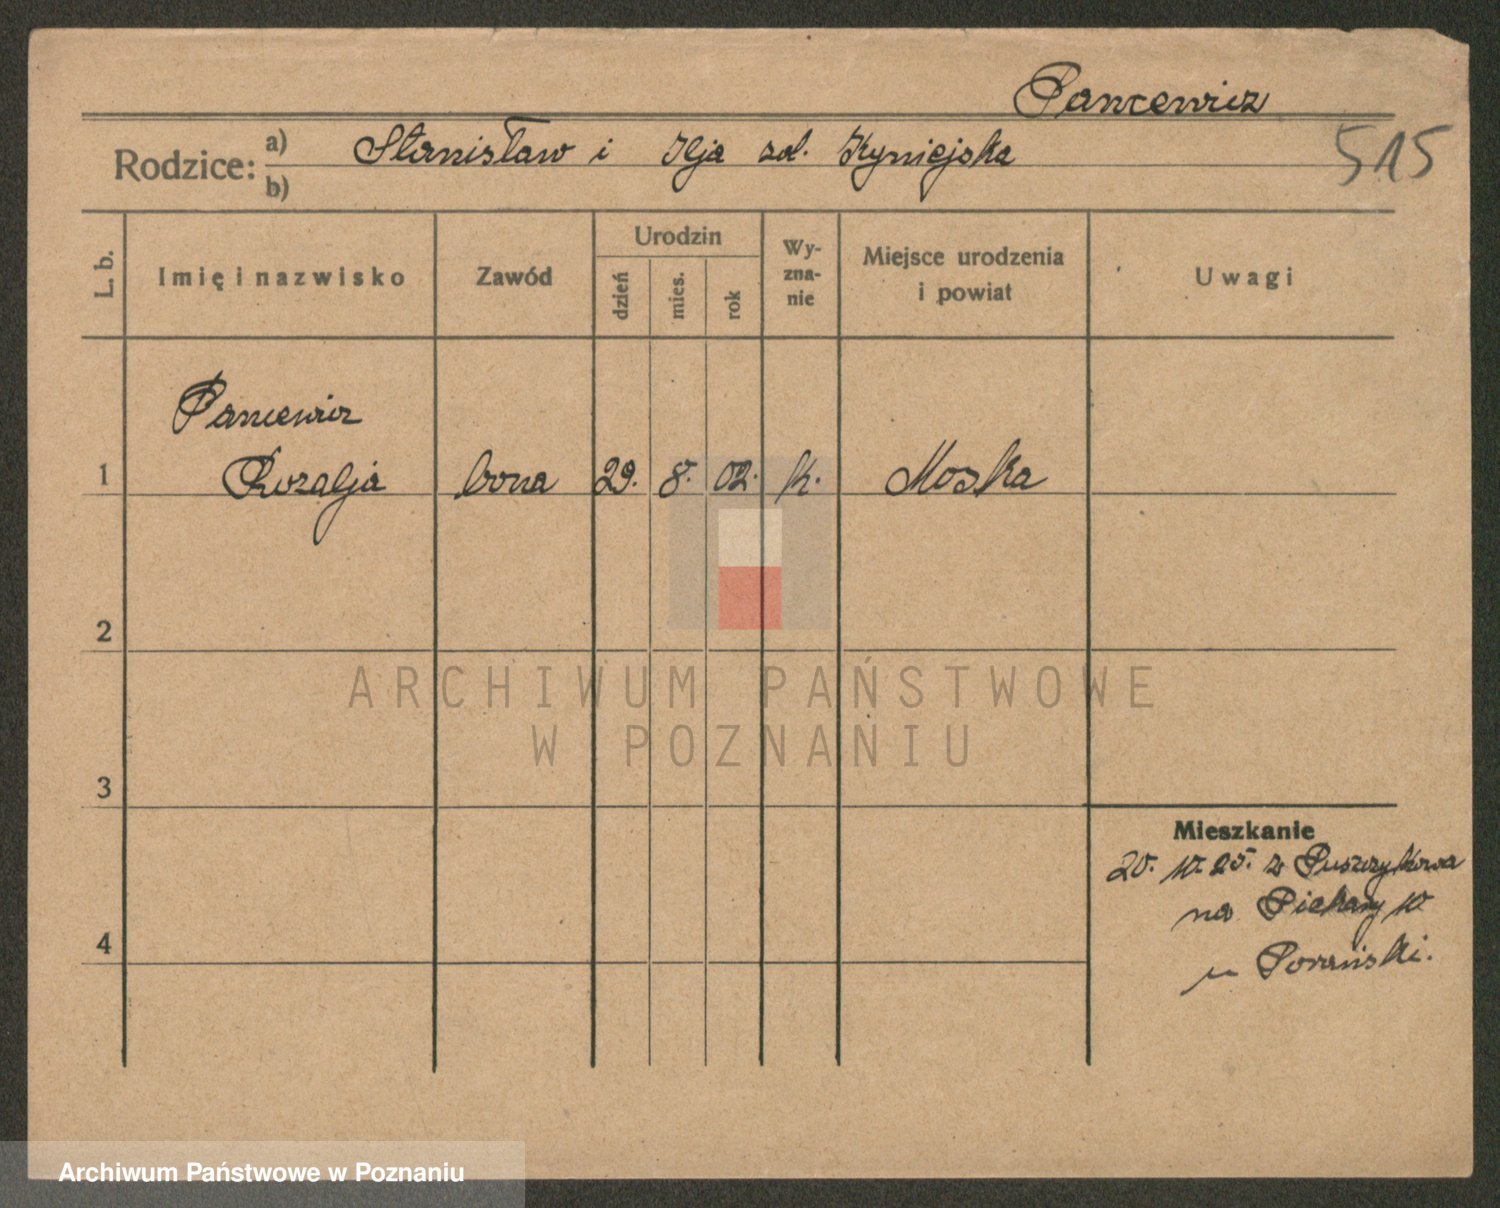 Pancewicz
Rodzice: a) Stanisław i Ilja zd.
b)
515
L. b.
Imię i nazwisko
Zawód
Urodzin
dzień
mies.
rok
Wy-
zna-
nie
Miejsce urodzenia
i powiat
Uwagi
Pancewicz
1 Rozalja bona 29. 8. 02. k. Moska
2
3
4
Mieszkanie
20. 10. 25. z Puszczykowa
na Piekary 10
u
ARCHIWUM PAŃSTWOWE
W POZNANIU
Archiwum Państwowe w Poznaniu